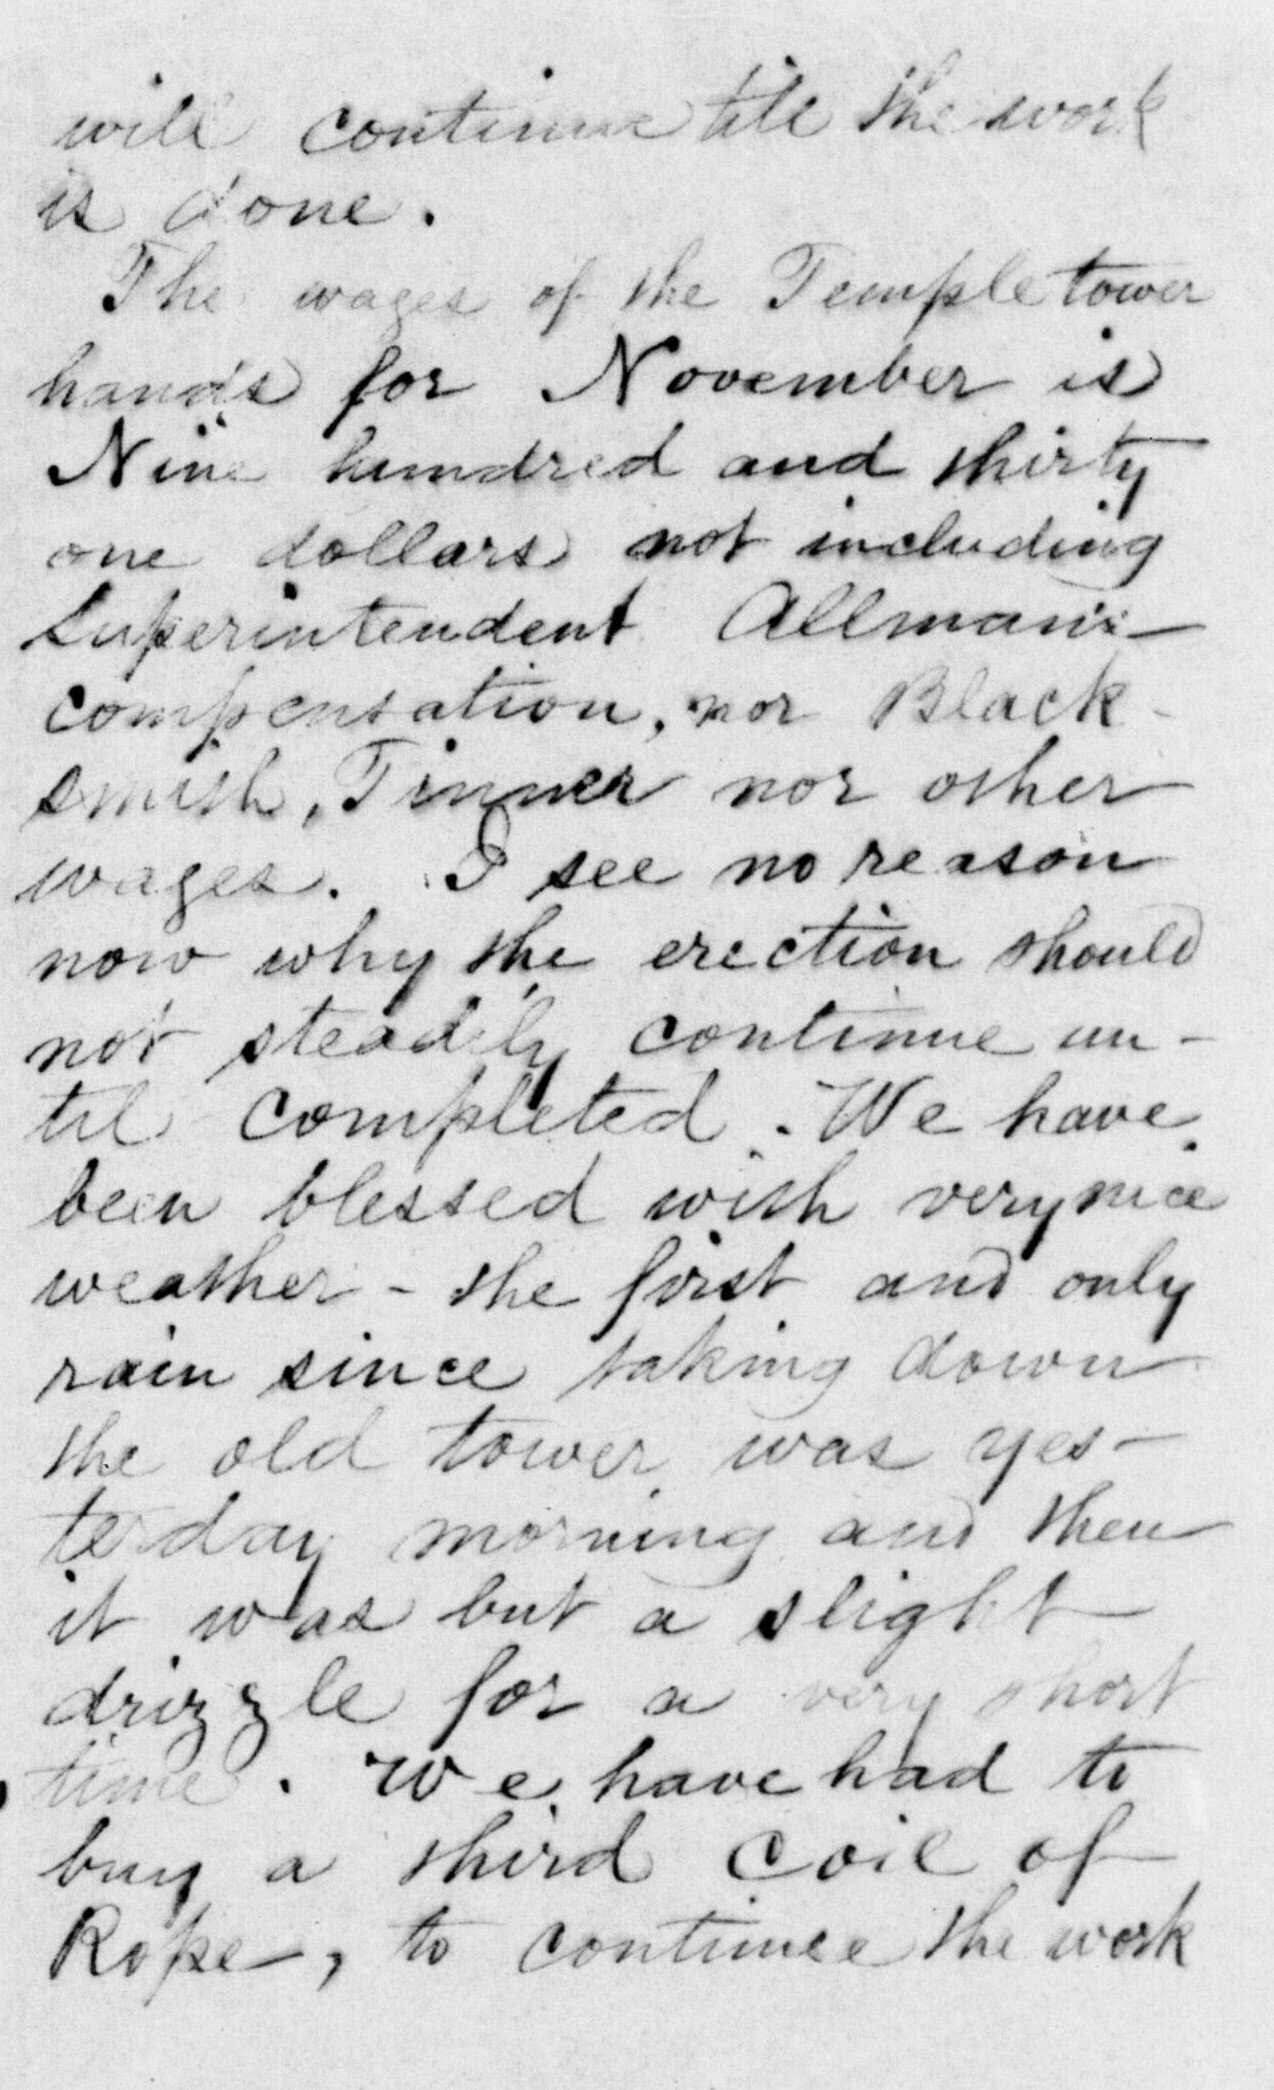 will continue till the work
is done.
The wages of the Temple tower
hands for November is
Nine hundred and thirty
one dollars not including
Superintendent Allman's
compensation, nor Black-
smith, Tinner nor other
wages. I see no reason
now why the erection should
not steadily continue un-
til completed. We have
been blessed with very nice
weather - the first and only
rain since taking down
the old tower was yes-
terday morning and then
it was but a slight
drizzle for a very short
time. We have had to
buy a third coil of
Rope, to continue the work